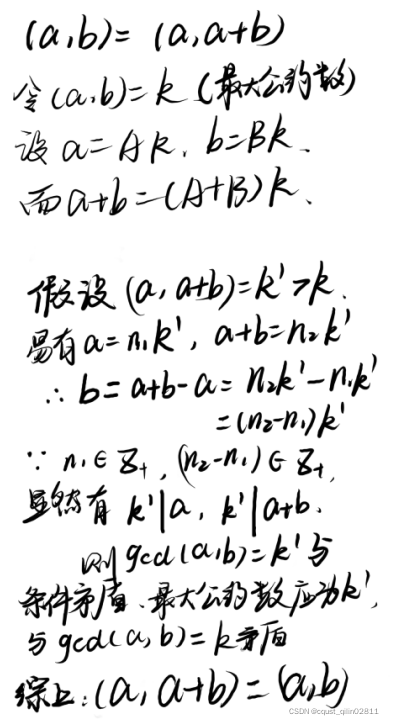 (a,b)= (a,a+b)
令(a,b)=k (最大公约数)
设 a=Ak, b=Bk、
而a+b=(A+B)k、
假设 (a, a+b)=k'>k.
易有 a=n₁k', a+b=n₂k'
∴ b=a+b-a= n₂k'-n₁k'
=(n₂-n₁)k'
∵ n₁∈Z₊, (n₂-n₁)∈Z₊,
显然有 k'|a, k'|a+b.
则 gcd(a,b)=k' 与
条件矛盾、最大公约数应为k',
与 gcd(a,b)=k矛盾
综上:(a, a+b)=(a,b)
CSDN @cqust_qilin02811